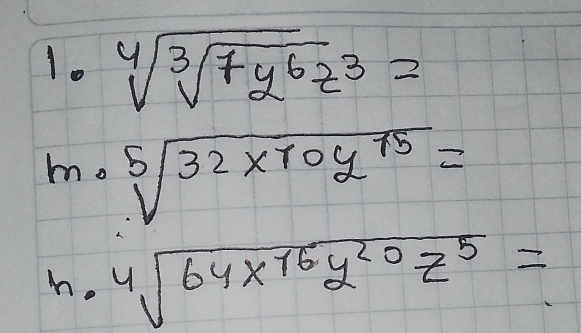 l. ⁴√³√7y⁶z³ =
m. ⁵√32x¹⁰y¹⁵ =
n. ⁴√64x¹⁶y²⁰z⁵ =